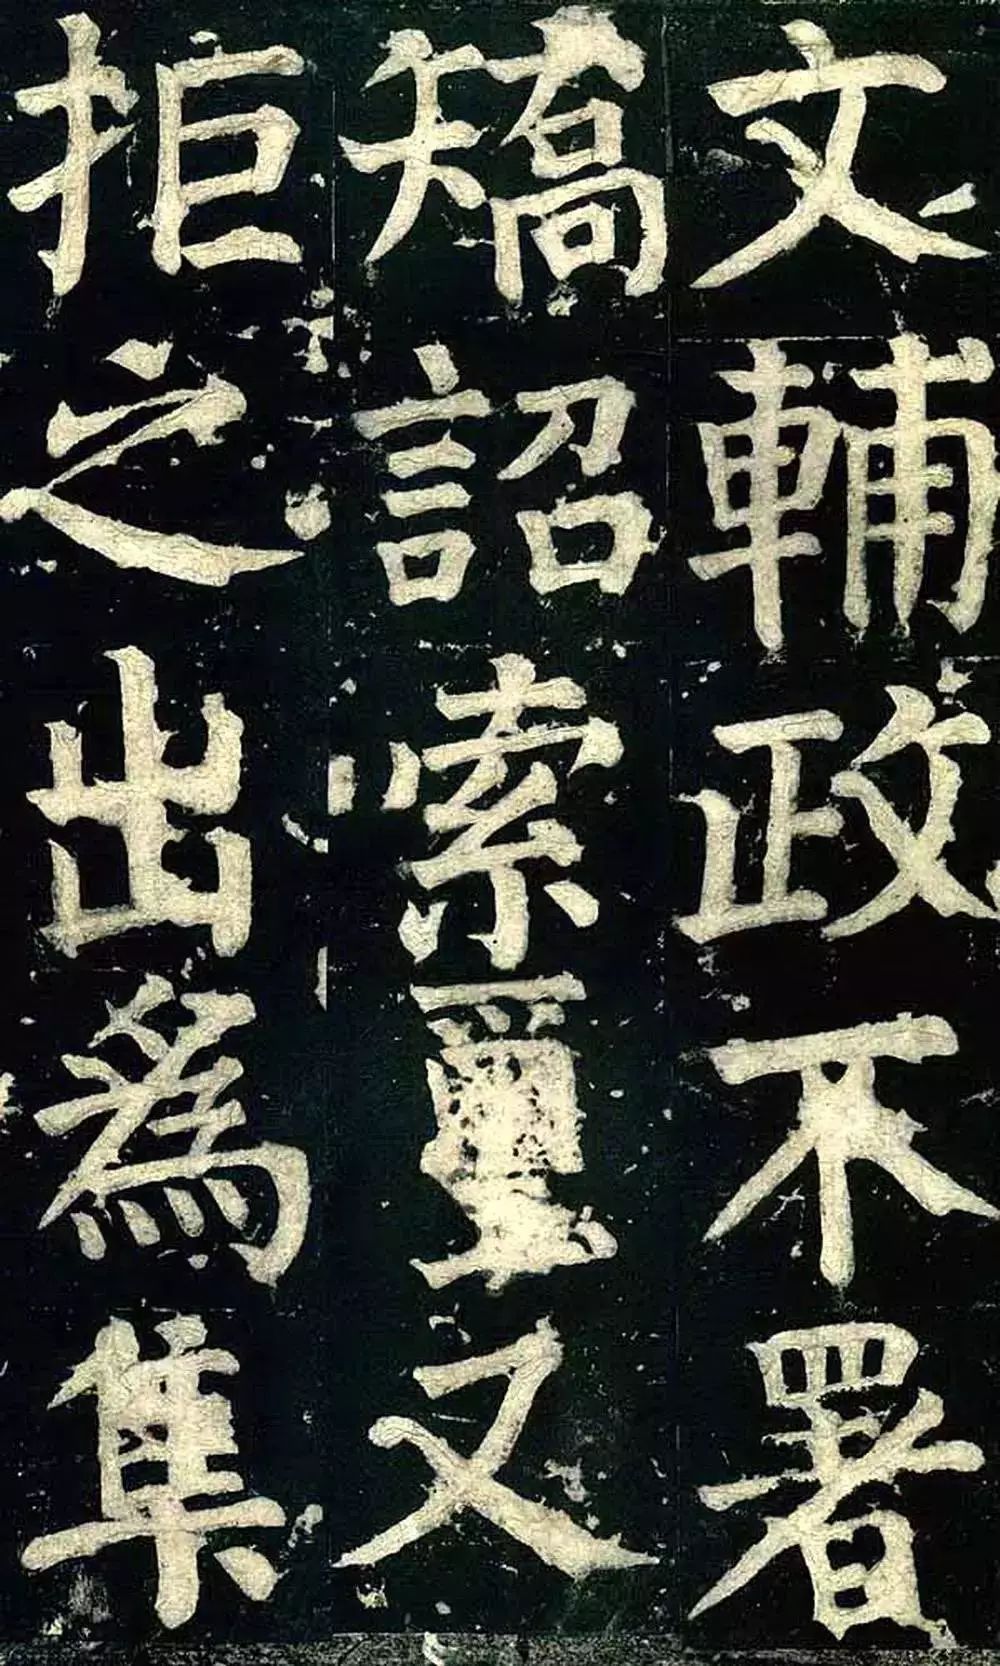 文輔政不署
矯詔索璽又
拒之出爲集